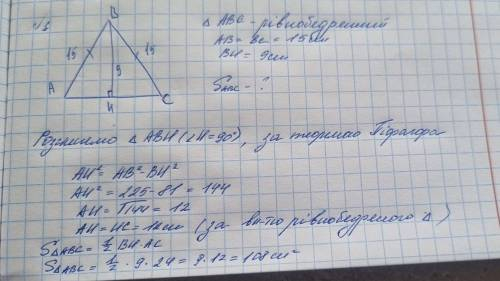 В
△ ABC - рівнобедрений
15 15
AB = BC = 15см
9
BH = 9см
A H C
S ABC - ?
Розглянемо △ ABH (∠H=90°), за теоремою Піфагора
AH² = AB² - BH²
AH² = 225 - 81 = 144
AH = √144 = 12
AH = HC = 12см (за вл-тю рівнобедреного △)
S△ABC = ½ BH · AC
S△ABC = ½ · 9 · 24 = 9 · 12 = 108 см²